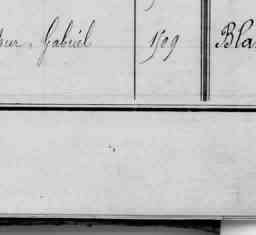 eur, Gabriel 1509 Bla